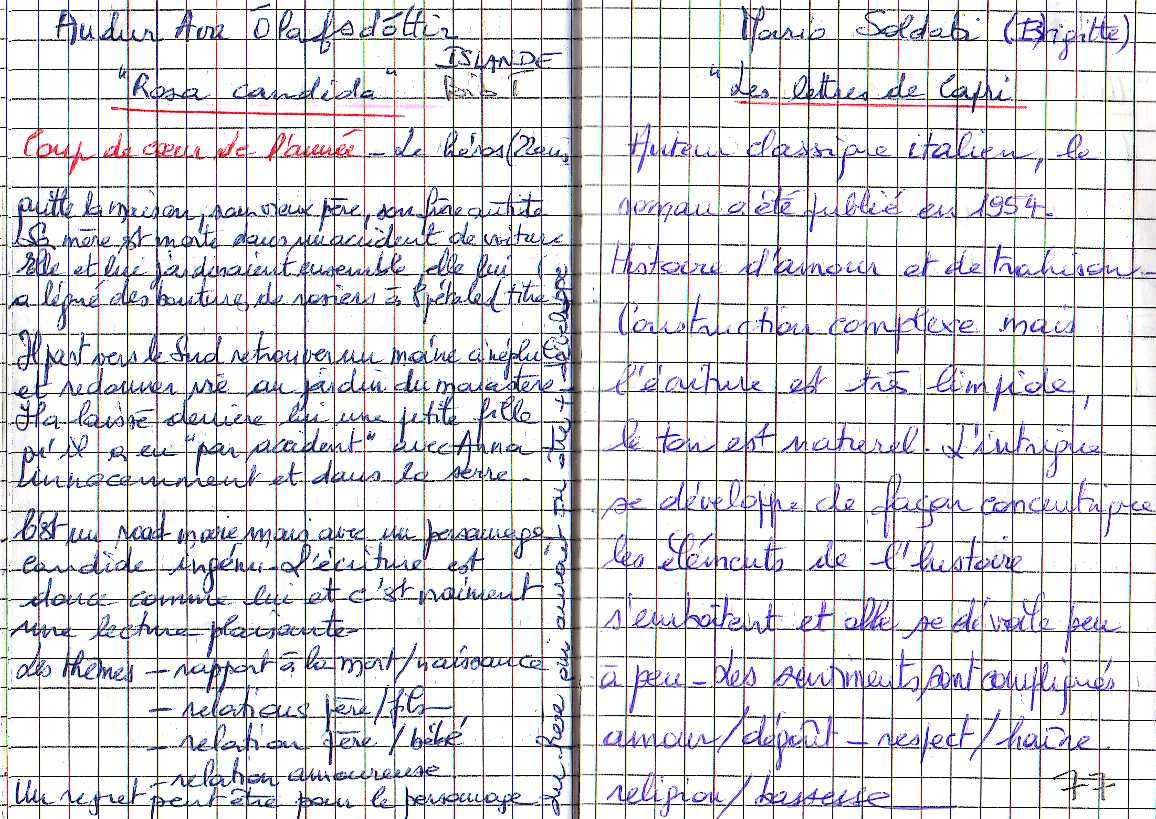 Audur Ava Ólafsdóttir
ISLANDE
"Rosa candida" Bib T
Coup de cœur de l'année - Le héros
quitte la maison, son vieux père, son frère autiste
Sa mère est morte dans un accident de voiture
Elle et lui jardinaient ensemble, elle lui
a légué des boutures de rosiers à 8 pétales (titre
Il part vers le Sud retrouver un moine cinéphile
et redonner vie au jardin du monastère -
Il a laissé derrière lui une petite fille
qu'il a eu "par accident" avec Anna
innocemment et dans la serre.
C'est un road movie mais avec un personnage
candide ingénu - L'écriture est
douce comme lui et c'est vraiment
une lecture plaisante -
des thèmes - rapport à la mort/naissance
- relations père/fils -
- relation père/bébé
- relation amoureuse
Un regret peut être pour le personnage
du frère qui aurait pu être + développé
Mario Soldati (Brigitte)
"Les lettres de Capri
Auteur classique italien, le
roman a été publié en 1954.
Histoire d'amour et de trahison -
Construction complexe mais
l'écriture est très limpide,
le ton est naturel. L'intrigue
se développe de façon concentrique
les éléments de l'histoire
s'emboîtent et elle se dévoile peu
à peu - Les sentiments sont compliqués
amour/dégoût - respect/haine
religion/bassesse
77